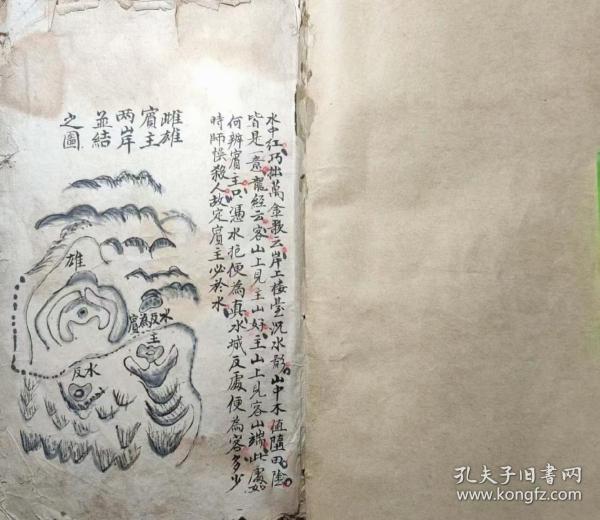 水中红巧拙萬金歌云岸上楼臺沉水影山中木值隨田
皆是一意龍經云客山上見主山好主山上見客山端此處如
何辨賓主只憑水抱便為真水城反處便為客多少
時師悞殺人故定賓主必於水
雌雄
賓主
两岸
並結
之圖
雄
水反為賓
主
水反
孔夫子旧书网
www.kongfz.com